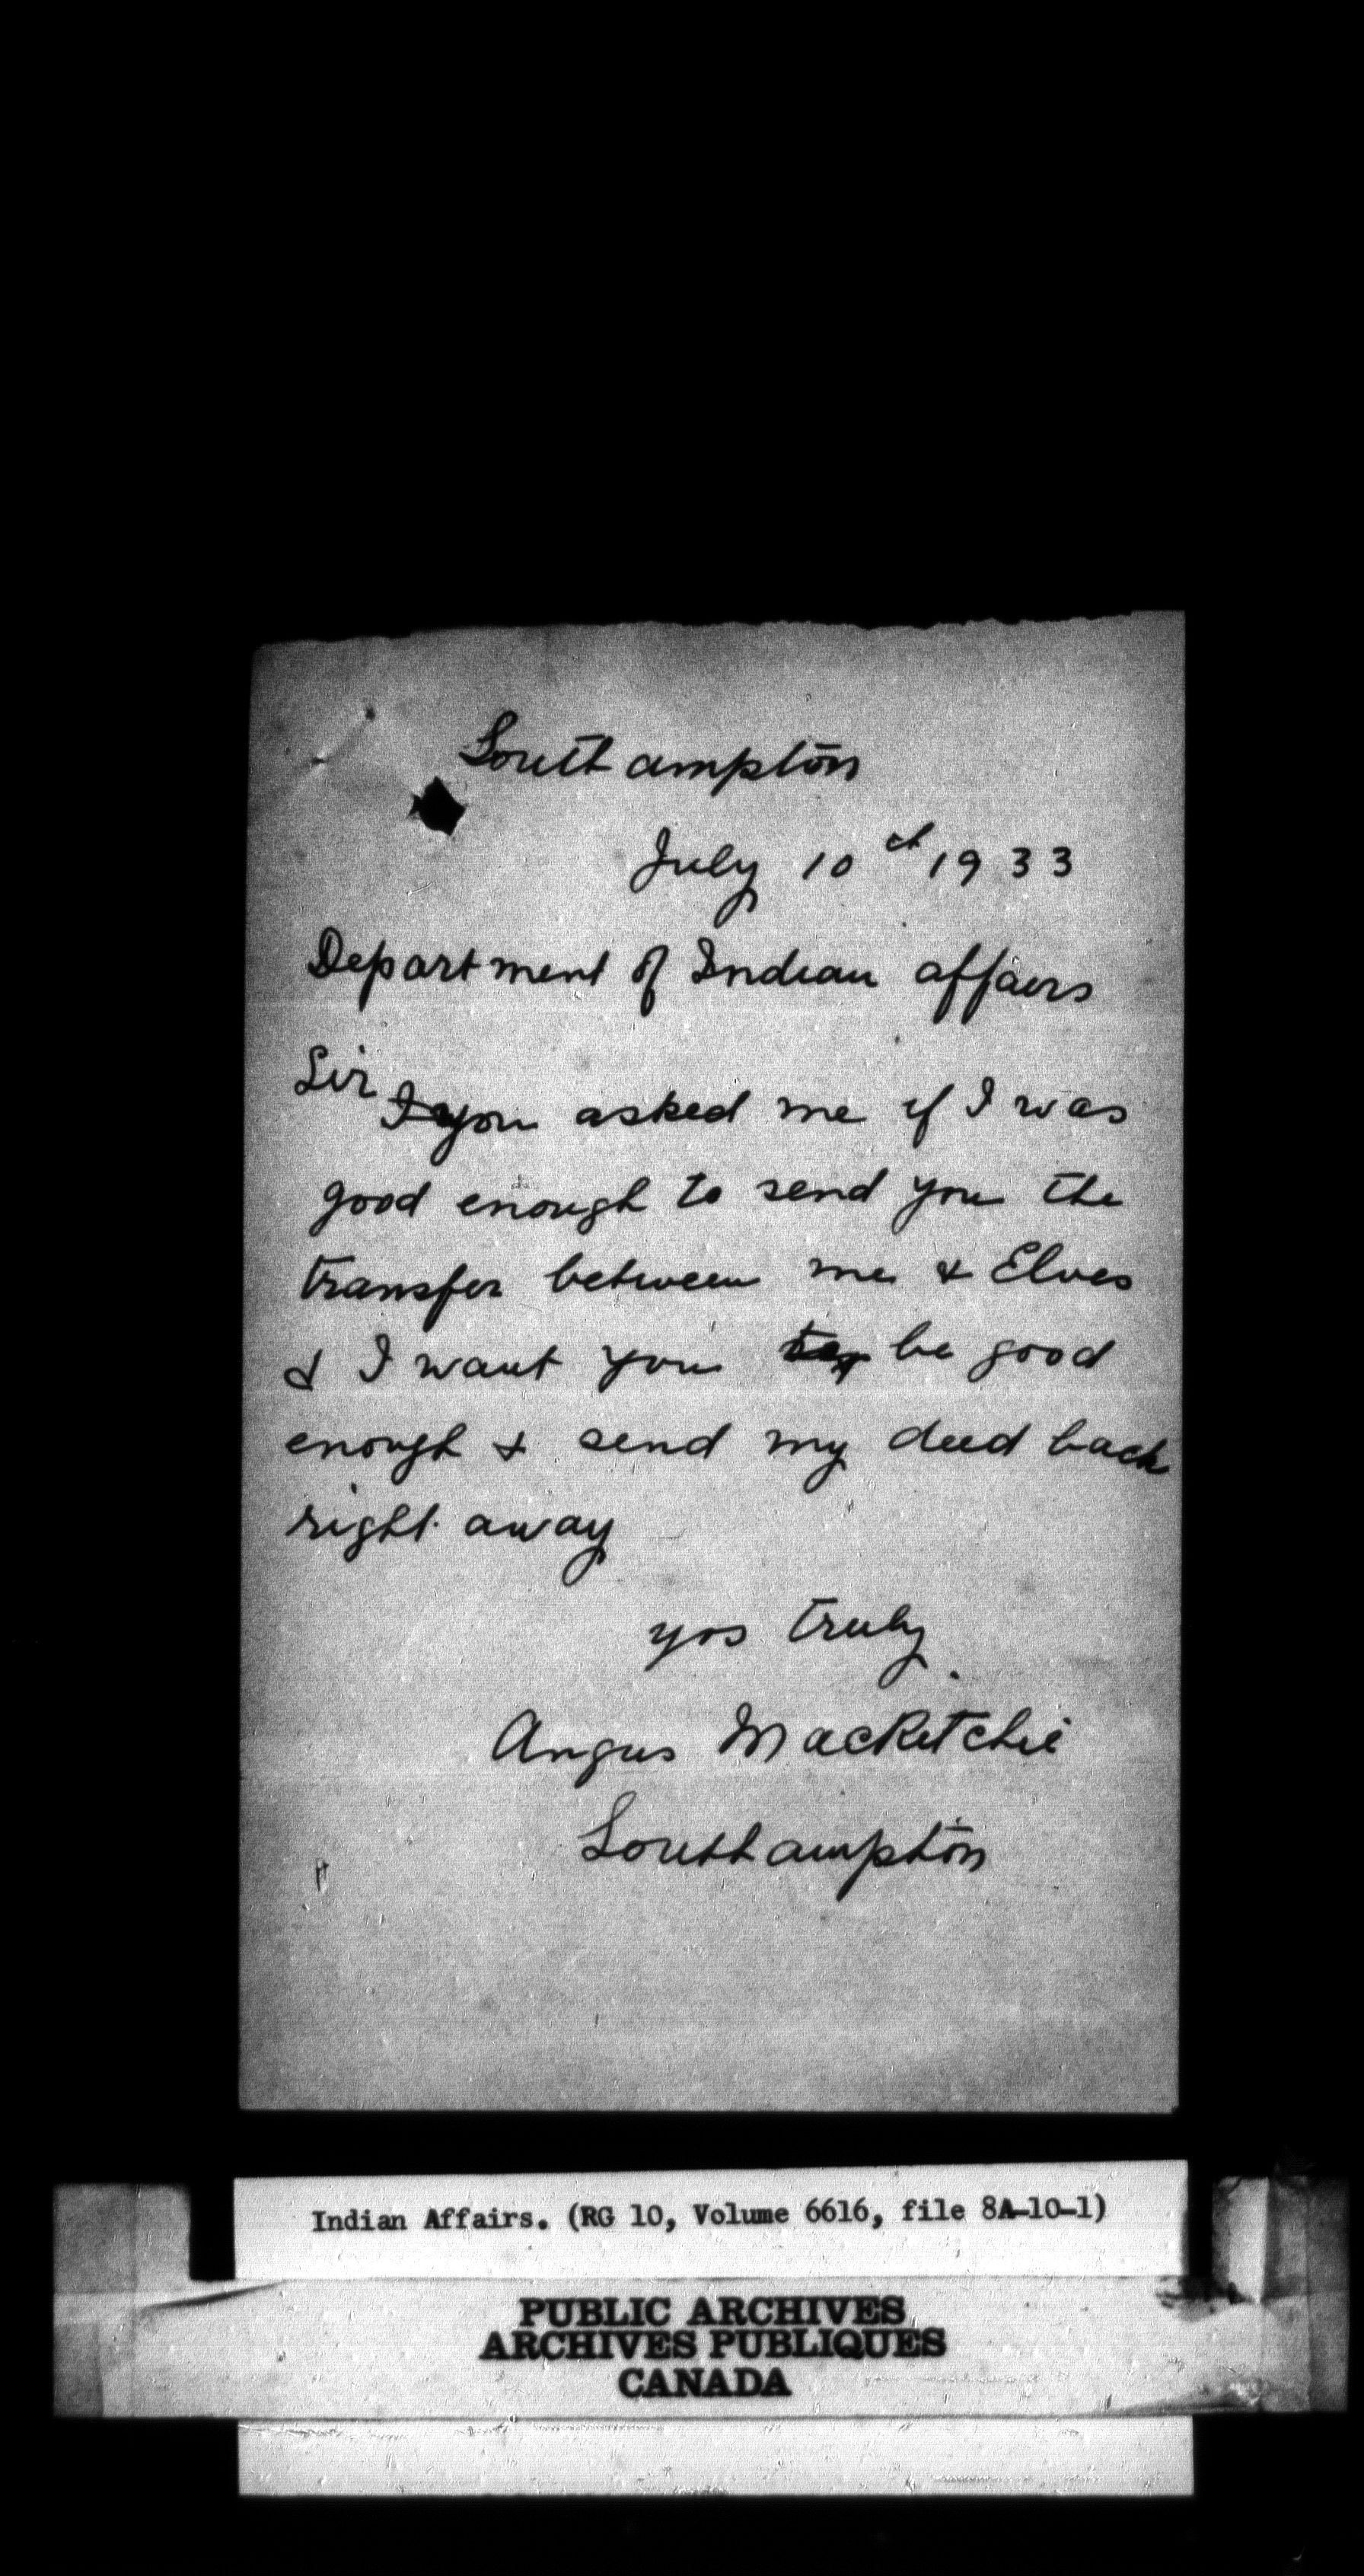 Southampton
July 10th 1933
Department of Indian affairs
Sir
you asked me if I was
good enough to send you the
transfer between me & Elves
& I want you be good
enough & send my deed back
right away
yrs truly.
Angus MacRitchie
Southampton
Indian Affairs. (RG 10, Volume 6616, file 8A-10-1)
PUBLIC ARCHIVES
ARCHIVES PUBLIQUES
CANADA